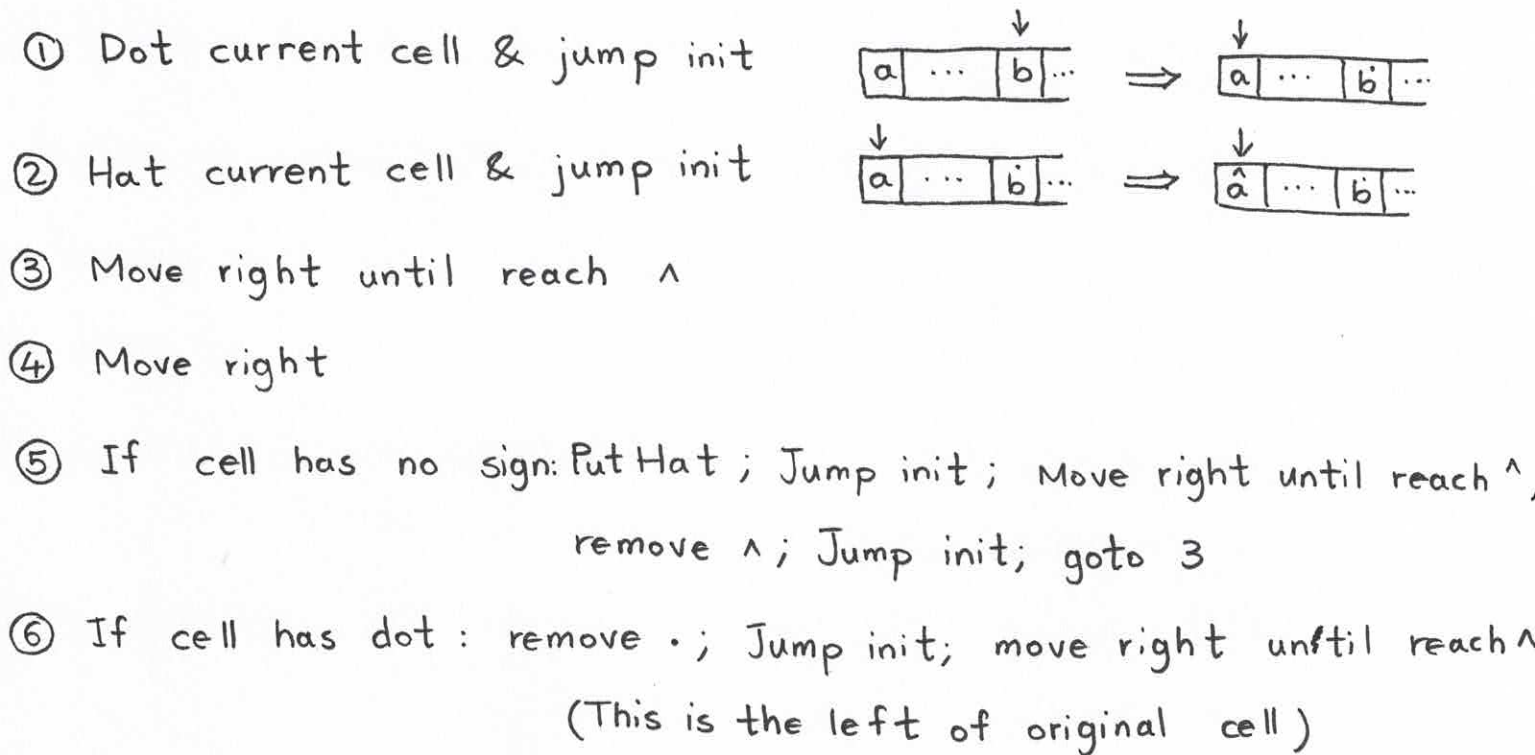 ① Dot current cell & jump init ↓ a ... b ... ⇒ ↓ a ... ḃ ...
② Hat current cell & jump init ↓ a ... ḃ ... ⇒ ↓ â ... ḃ ...
③ Move right until reach ^
④ Move right
⑤ If cell has no sign: Put Hat ; Jump init ; Move right until reach ^,
remove ^ ; Jump init; goto 3
⑥ If cell has dot : remove . ; Jump init; move right until reach ^
(This is the left of original cell)